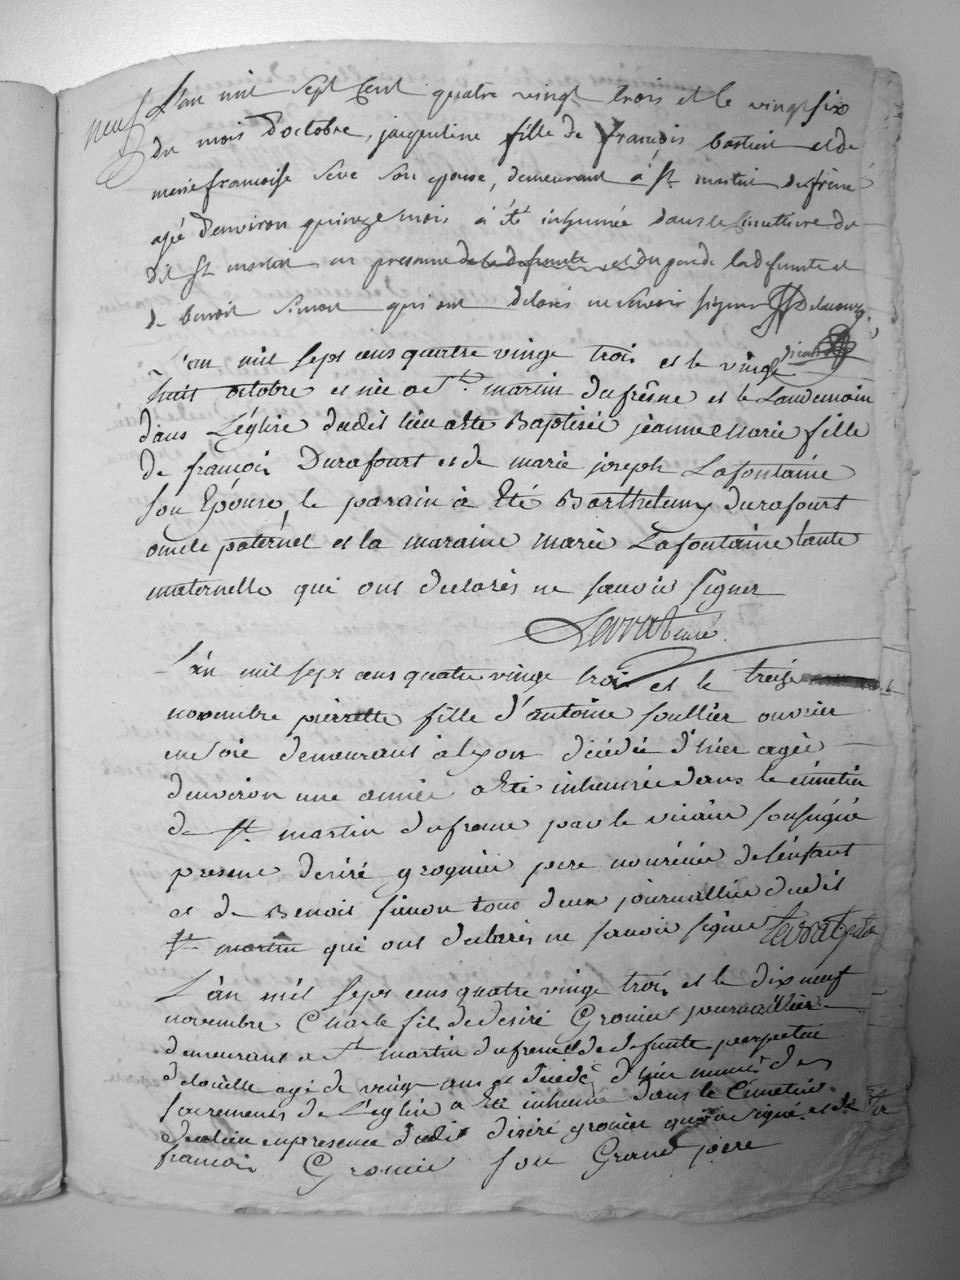 neuf
L'an mil sept Cent quatre vingt trois et le vingt six
du mois d'octobre, jacqueline fille de françois bastien et de
marie francoise seve son epouse, demeurant à St martin du frêne
agée d'environ quinze mois à été inhumée dans le cimetiere du
dit St martin en presence de la defunte et du pere de la defunte et
de benoit simon qui ont délarés ne savoir signer
vicaire
L'an mil sept cens quatre vingt trois et le vingt
huit octobre est née a St martin du frêne et le Landemain
dans L'église dudit lieu a ete Baptisée jeanne Marie fille
de françois Durafourt et de marie joseph Lafontaine
son Epouse, le parain à Eté Barthelemy durafourt
oncle paternel et la maraine marie Lafontaine tante
maternelle qui ont declarés ne savoir signer
Levrat curé
L'an mil sept cens quatre vingt trois et le treize
novembre pierrette fille d'antoine soullier ouvrier
en soie demeurant à lyon décédée d'hier agée
d'environ une année a Eté inhumée dans le cimetier
de St martin du frene par le vicaire soussigné
present desiré grognier pere nouricier de l'enfant
et de Benoit simon tous deux journallier dudit
St martin qui ont declarés ne savoir signer Levrat
L'an mil sept cens quatre vingt trois et le dix neuf
novembre Charle fils de desiré Gronier journaillier
demeurant a St martin du frene et de defunte perpetue
delouille agé de vingt ans et decedé d'hier munis des
sacrements de L'eglise a Eté inhumé dans le Cimetier
dudit lieu en presence dudit desiré gronier qui a signé et de
francois Gronier son Grand pere